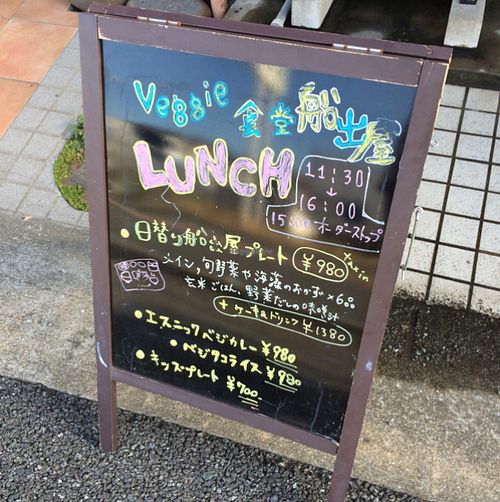 Veggie 食堂 船出屋
LUNCH
11:30
↓
16:00
15:00 オーダーストップ
• 日替り船出屋プレート ¥980 tax in
メイン, 旬野菜や海藻のおかず×6品
玄米ごはん, 野菜だしの味噌汁
+ ケーキ&ドリンク ¥1380
• エスニックベジカレー ¥980
• ベジタコライス ¥980
• キッズプレート ¥700